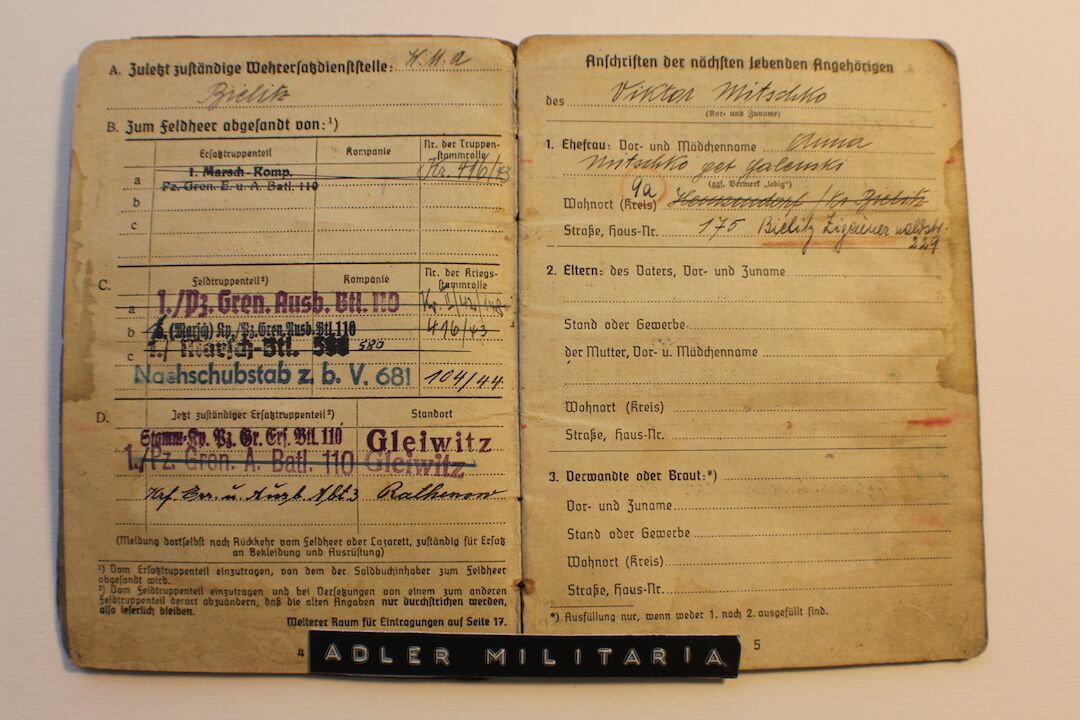 A. Zuletzt zuständige Wehrersatzdienststelle: W.M.A
Bielitz
B. Zum Feldheer abgesandt von:¹)
Ersatztruppenteil Kompanie Nr. der Truppen-
stammrolle
a 1. Marsch-Komp. Nr. 416/43
Pz. Gren. E. u. A. Batl. 110
b
c
C. Feldtruppenteil²) Kompanie Nr. der Kriegs-
stammrolle
a 1./Pz. Gren. Ausb. Btl. 110
b (Marsch) Kp./Pz. Gren. Ausb. Btl. 110 416/43
c 1./ Marsch-Btl. 580
Nachschubstab z. b. V. 681 104/44
D. Jetzt zuständiger Ersatztruppenteil²) Standort
Stamm-Kp. Pz. Gr. Ers. Btl. 110 Gleiwitz
1./Pz. Gren. A. Batl. 110 Gleiwitz
Krf. Ers. u. Ausb. Abt. 3 Rathenow
(Meldung dortselbst nach Rückkehr vom Feldheer oder Lazarett, zuständig für Ersatz
an Bekleidung und Ausrüstung)
¹) Vom Ersatztruppenteil einzutragen, von dem der Soldbuchinhaber zum Feldheer
abgesandt wird.
²) Vom Feldtruppenteil einzutragen und bei Versetzungen von einem zum anderen
Feldtruppenteil derart abzuändern, daß die alten Angaben nur durchstrichen werden,
also leserlich bleiben.
Weiterer Raum für Eintragungen auf Seite 17.
4
Anschriften der nächsten lebenden Angehörigen
des Viktor Mitschko
(Vor- und Zuname)
1. Ehefrau: Vor- und Mädchenname Anna
Mitschko geb Galenski
(ggf. Vermerk „ledig")
9a
Wohnort (Kreis) / Kr Bielitz
Straße, Haus-Nr. 175 Bielitz Zigeuner waldstr.
229
2. Eltern: des Vaters, Vor- und Zuname
Stand oder Gewerbe
der Mutter, Vor- u. Mädchenname
Wohnort (Kreis)
Straße, Haus-Nr.
3. Verwandte oder Braut:*)
Vor- und Zuname
Stand oder Gewerbe
Wohnort (Kreis)
Straße, Haus-Nr.
*) Ausfüllung nur, wenn weder 1. noch 2. ausgefüllt sind.
5
ADLER MILITARIA